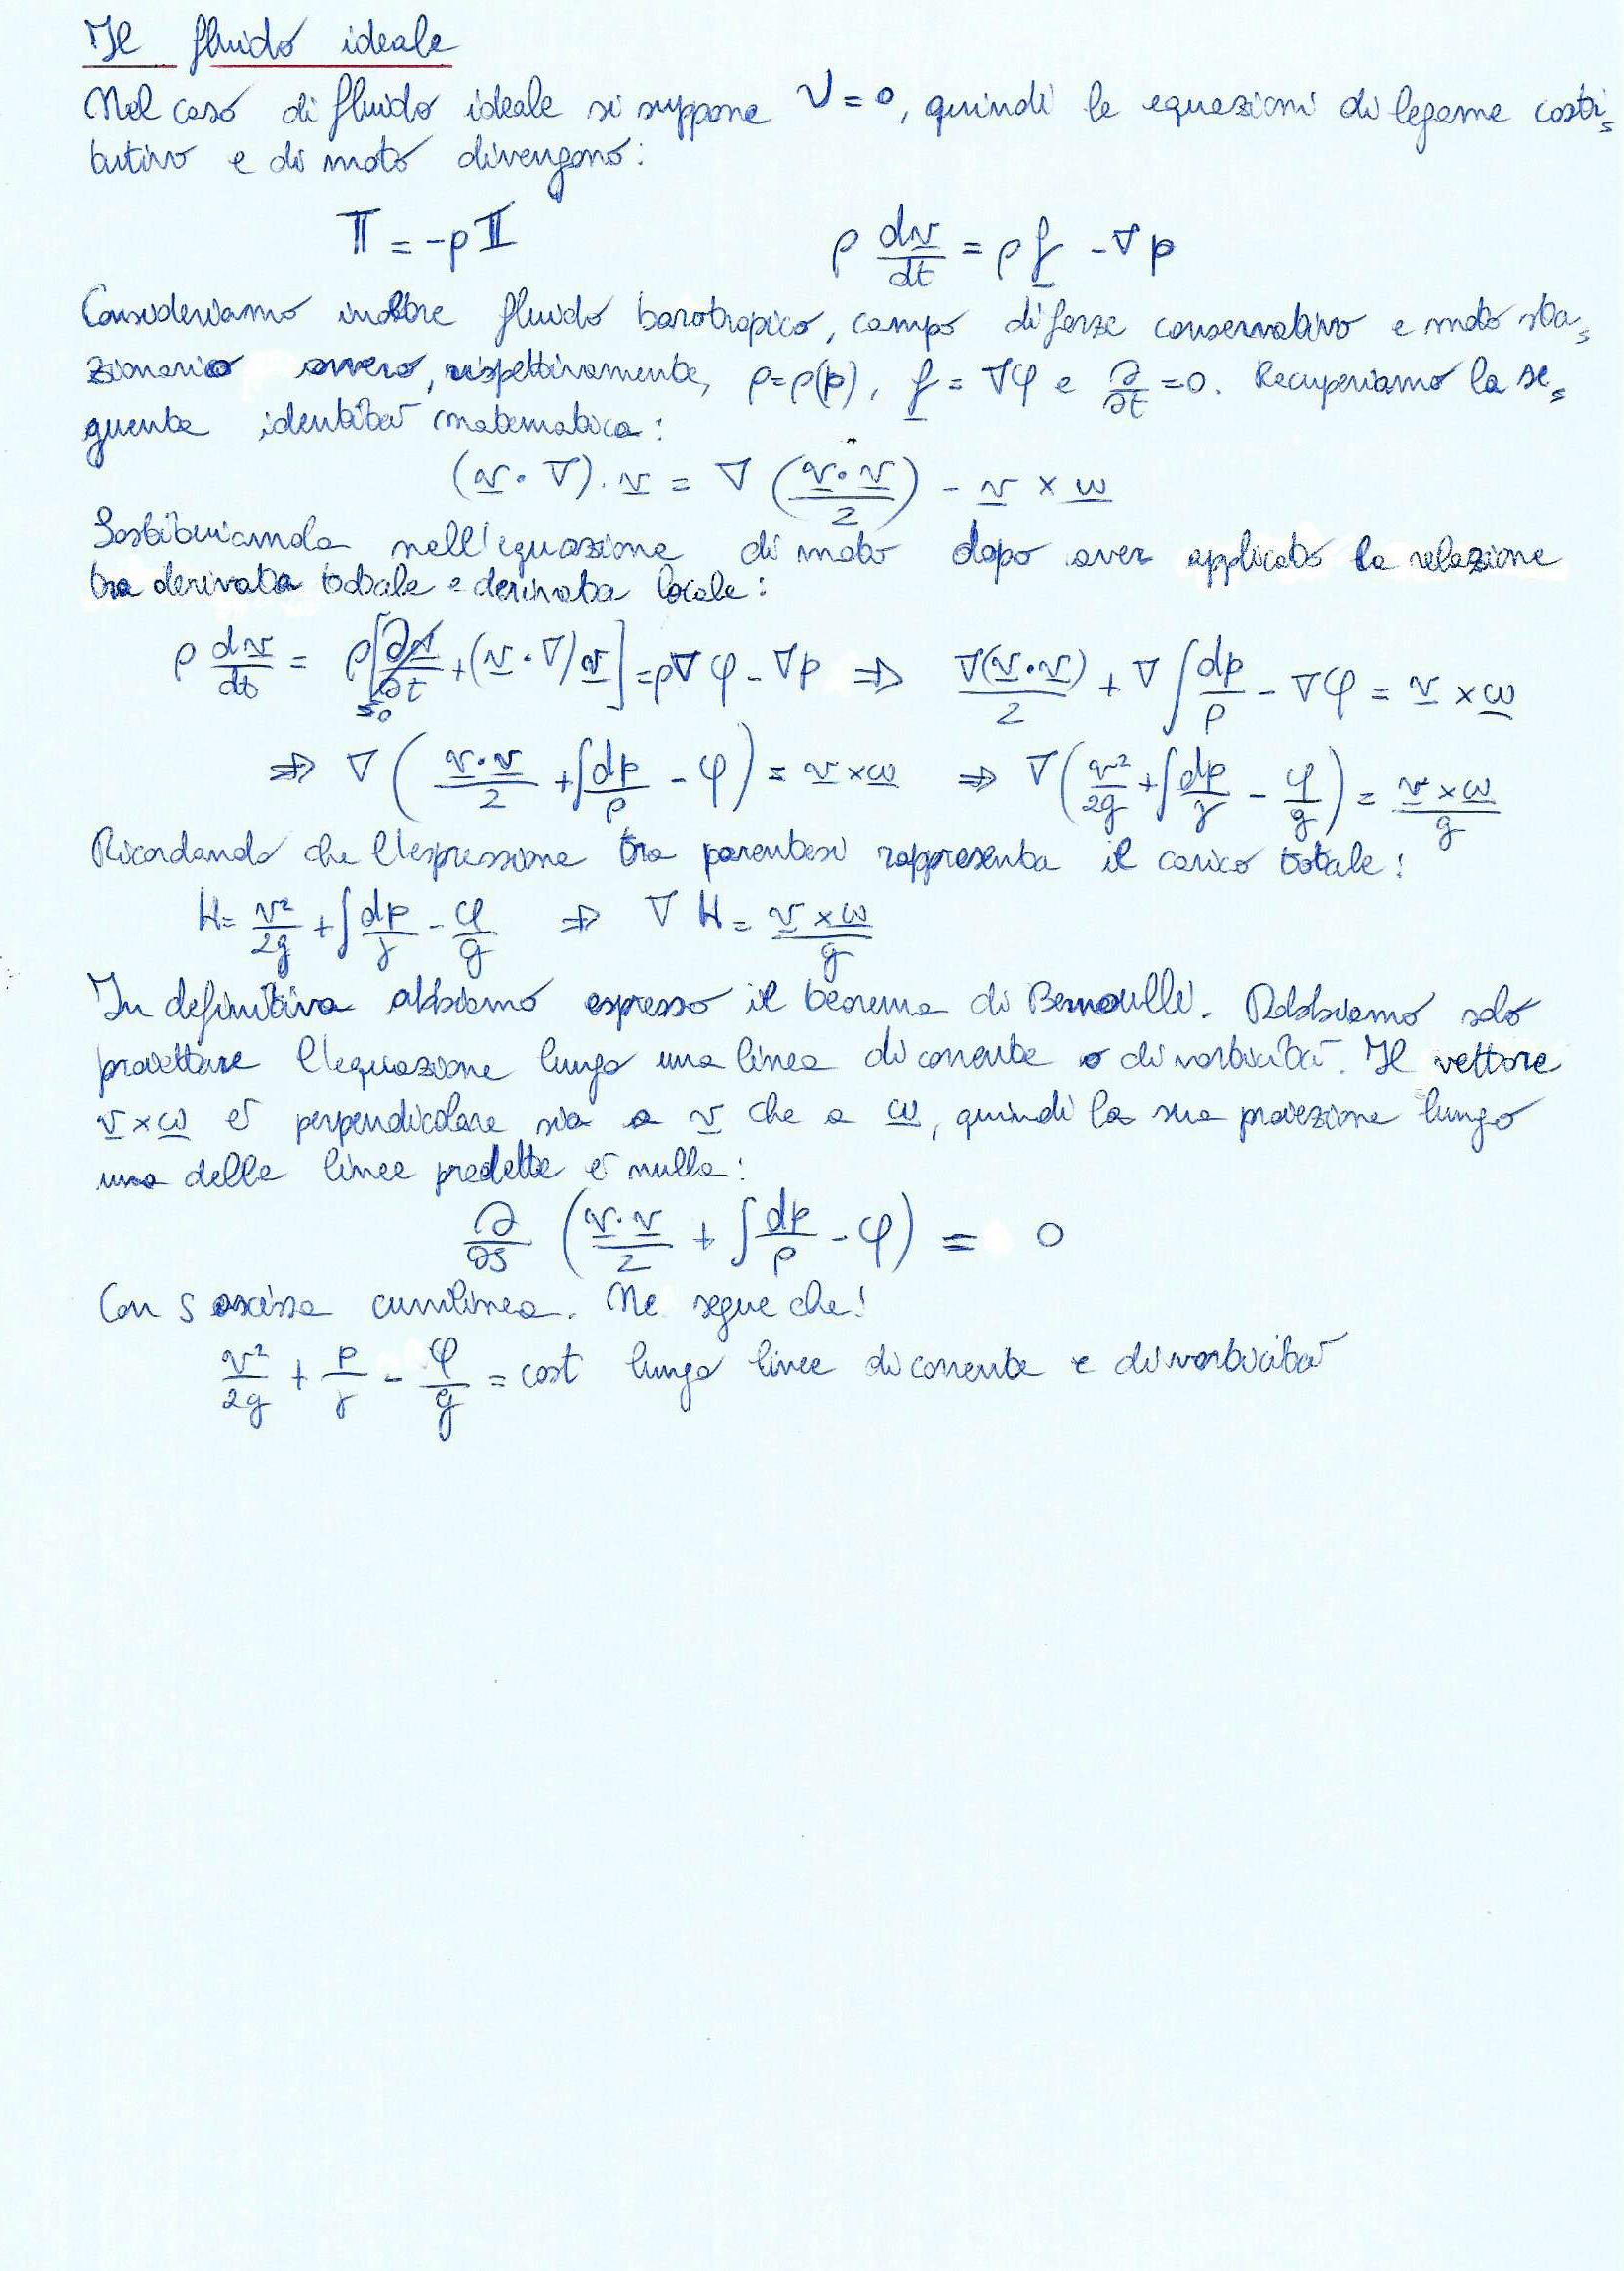 Il fluido ideale
Nel caso di fluido ideale si suppone ν = 0, quindi le equazioni di legame costi=
tutivo e di moto divengono:
𝕋 = -p𝕀    ρ dv/dt = ρ f - ∇p
Consideriamo inoltre fluido barotropico, campo di forze conservativo e moto sta=
zionario ovvero, rispettivamente, ρ=ρ(p), f = ∇φ e ∂/∂t = 0. Recuperiamo la se=
guente identità matematica:
(v · ∇) · v = ∇ (v · v / 2) - v × ω
Sostituiamola nell'equazione di moto dopo aver applicato la relazione
tra derivata totale e derivata locale:
ρ dv/dt = ρ[∂v/∂t + (v · ∇) v] = ρ∇φ - ∇p ⇒ ∇(v · v)/2 + ∇∫dp/ρ - ∇φ = v × ω
=0
⇒ ∇ (v · v / 2 + ∫dp/ρ - φ) = v × ω ⇒ ∇(v²/2g + ∫dp/γ - φ/g) = v × ω / g
Ricordando che l'espressione tra parentesi rappresenta il carico totale:
H = v²/2g + ∫dp/γ - φ/g ⇒ ∇H = v × ω / g
In definitiva abbiamo espresso il teorema di Bernoulli. Dobbiamo solo
proiettare l'equazione lungo una linea di corrente o di vorticità. Il vettore
v × ω è perpendicolare sia a v che a ω, quindi la sua proiezione lungo
una delle linee predette è nulla:
∂/∂s (v · v / 2 + ∫dp/ρ - φ) = 0
Con s ascissa curvilinea. Ne segue che:
v²/2g + p/γ - φ/g = cost lungo linee di corrente e di vorticità